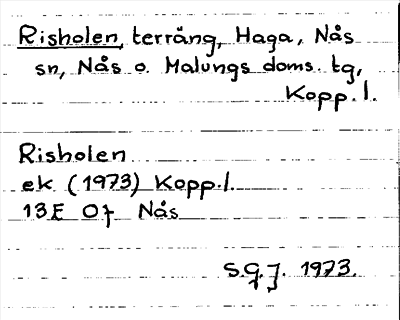 Risholen, terräng, Haga, Nås
sn, Nås o. Malungs doms. tg,
Kopp. l.
Risholen
ek (1973) Kopp. l.
13E 0f Nås
S.G.J. 1973.